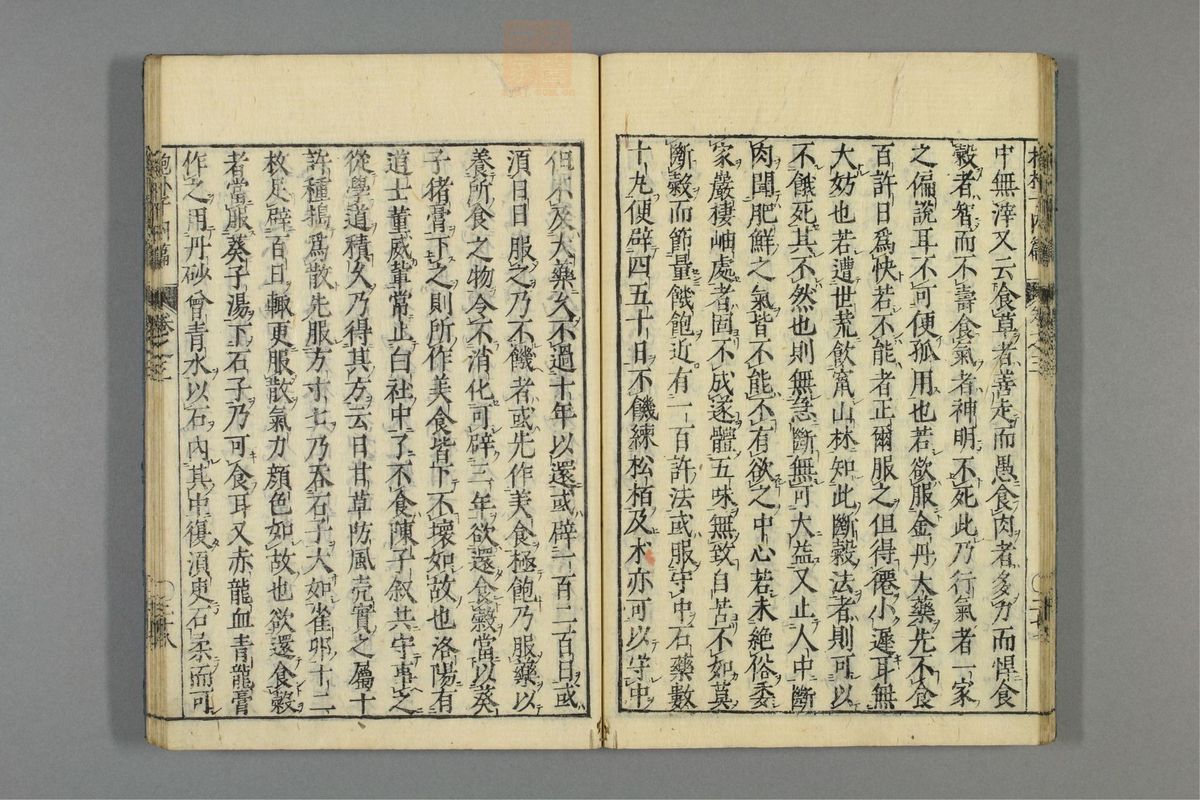 中無滓又云食草者善走而愚食肉者多力而悍食
穀者智而不壽食氣者神明不死此乃行氣者一家
之偏說耳不可便孤用也若欲服金丹大藥先不食
百許日爲快若不能者正爾服之但得僊小遲耳無
大妨也若遭世荒飲竄山林知此斷穀法者則可以
不餓死其不然也則無急斷無可大益又止人中斷
肉聞肥鮮之氣皆不能不有欲之中心若未絶俗委
家嚴棲岫處者固不成遂體五味無致自苦不如莫
斷穀而節量飢飽近有一百許法或服守中石藥數
十丸便辟四五十日不饑練松栢及朮亦可以守中
但不及大藥久不過十年以還或辟一百二百日或
須日日服之乃不饑者或先作美食極飽乃服藥以
養所食之物令不消化可辟三年欲還食穀當以葵
子猪膏下之則所作美食皆下不壞如故也洛陽有
道士董威輦常止白社中了不食陳子敘共守事之
從學道積久乃得其方云日甘草防風莧實之屬十
許種搗爲散先服方寸匕乃吞石子大如雀卵十二
枚足辟百日輙更服散氣力顔色如故也欲還食穀
者當服葵子湯下石子乃可食耳又赤龍血青龍膏
作之用丹砂曾青水以石內其中復須臾石柔而可
抱朴子內篇
卷之三